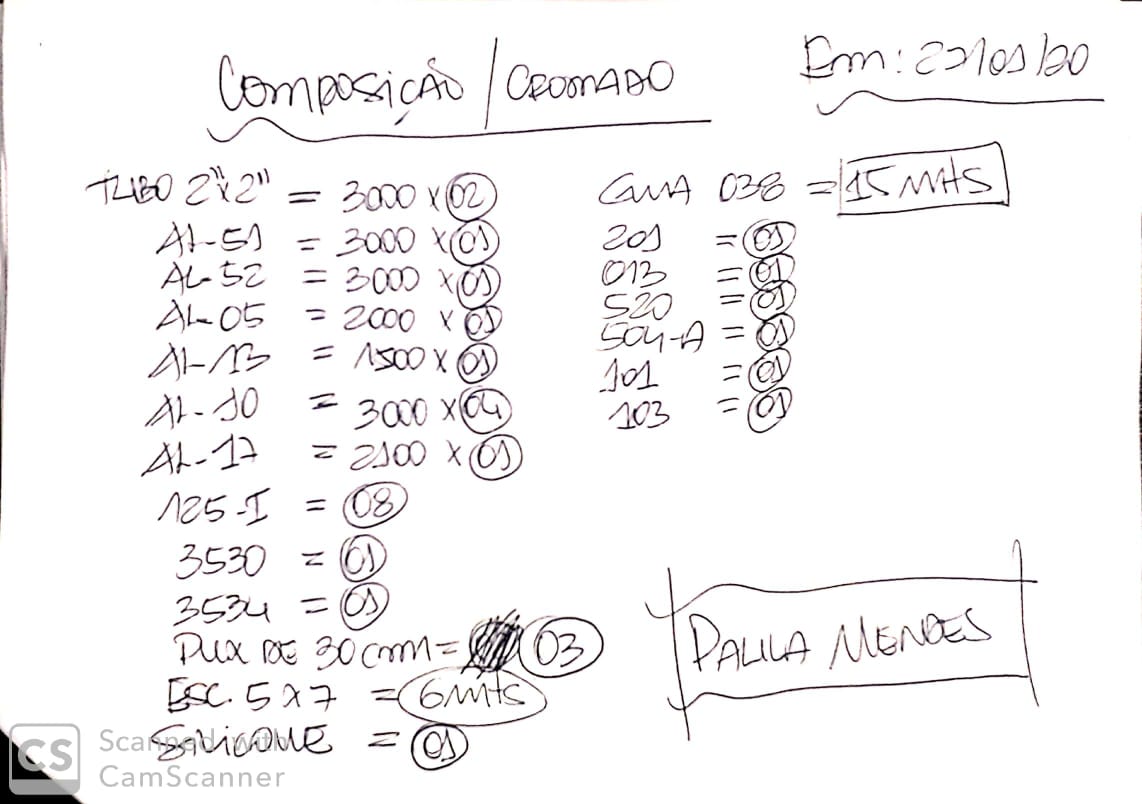 COMPOSIÇÃO / CROMADO
Em: 22/01/20
TUBO 2"x2" = 3000 x 02
AL-51 = 3000 x 01
AL-52 = 3000 x 01
AL-05 = 2000 x 01
AL-13 = 1500 x 01
AL-10 = 3000 x 04
AL-17 = 2100 x 01
125-I = 08
3530 = 01
3534 = 01
PUX DE 30cm = 03
ESC. 5x7 = 6mts
SILICONE = 01
GUIA 038 = 15 Mts
201 = 01
013 = 01
520 = 01
504-A = 01
101 = 01
103 = 01
PAULA MENDES
CS Scanned with
CamScanner